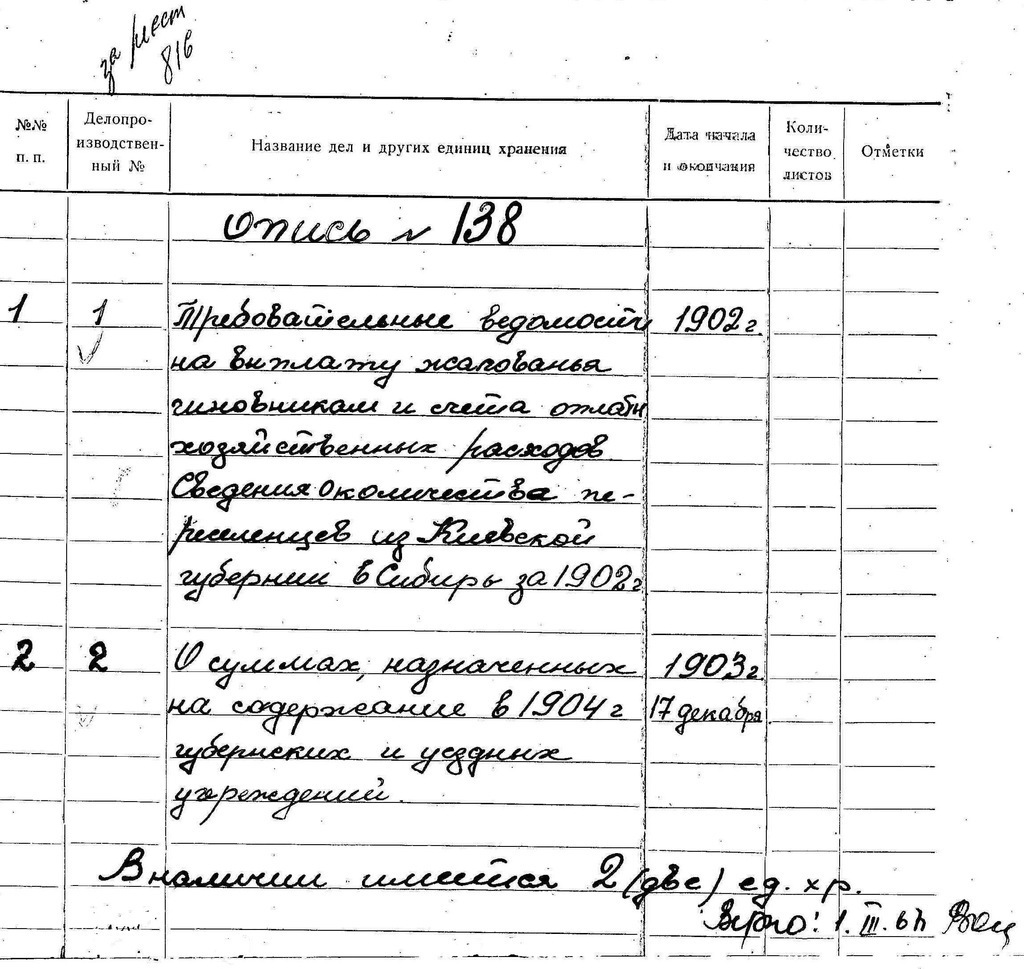 за
816
№№ п. п.
Делопро-
изводствен-
ный №
Название дел и других единиц хранения
Дата начала
и окончания
Коли-
чество
листов
Отметки
Опись № 138
1 1 Требовательные ведомости 1902 г.
на выплату жалованья
чиновникам и счета оплаты
хозяйственных расходов.
Сведения о количества пе-
реселенцев из Киевской
губернии в Сибирь за 1902 г.
2 2 О суммах, назначенных 1903 г.
на содержание в 1904 г 17 декабря
губернских и уездных
учреждений.
В наличии имеется 2 (две) ед. хр.
Верно: 1. III. 67